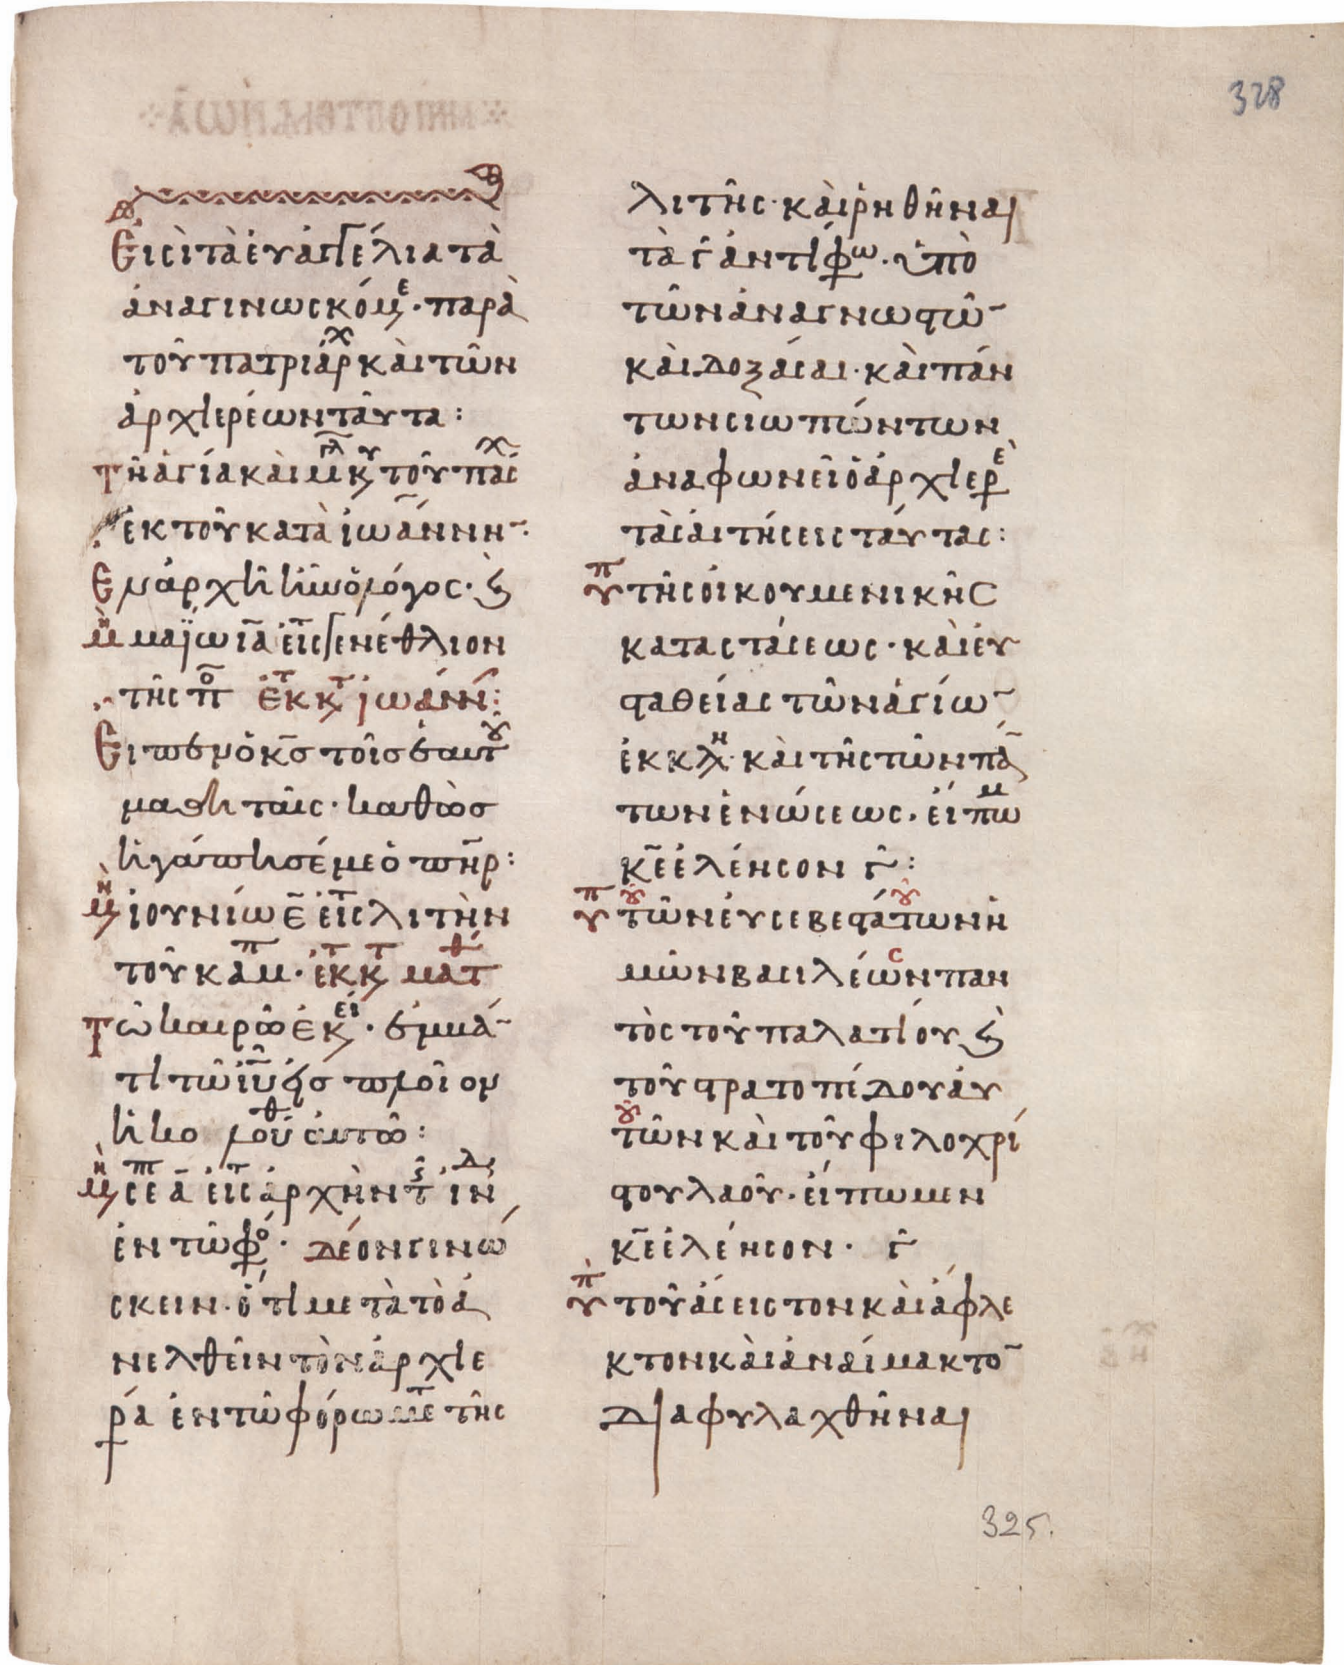 328
Εἰσὶ τὰ ἐυαγγέλια τὰ
ἀναγινωσκόμε · παρὰ
τοῦ πατριάρχ καὶ τῶν
ἀρχιερέων ταῦτα :
Τῆ ἁγία καὶ μγλ κυ τοῦ πάσχ
ἐκ τοῦ κατὰ ἰωάννη ·
Εν ἀρχῆ ἦν ὁ λόγος · ϗ
μὴ μαΐω ια εἰς γενέθλιον
τῆς πο ἐκ κτ ἰωάνν :
Εἶπεν ὁ κς τοῖς ἑαυτου
μαθηταῖς · καθὼς
ἠγάπησέ με ὁ πηρ :
μην ἰουνίω ε εἰς λιτὴν
τοῦ καμπ · ἐκ κτ ματθ
Τῶ καιρῶ ἐκεί · ἐμβά
τι τῶ ιυ ἐς πλοῖον
ἠκολούθ αὐτῶ :
μην σεπ α εἰς ἀρχὴν τῆς ἰνδ
ἐν τῶ φόρ · Δέον γινώ
σκειν · ὅτι μετὰ τὸ ἀ
νελθεῖν τὸν ἀρχιε
ρέα ἐν τῶ φόρω μετ τῆς
λιτῆς · καὶ ῥηθῆναι
τὰ γ ἀντίφω · ὑπὸ
τῶν ἀναγνωστῶ
καὶ δοξάσαι · καὶ πάν
των σιωπώντων
ἀναφωνεῖ ὁ ἀρχιερε
τὰς αἰτήσεις ταύτας :
ὑπ τῆς οἰκουμενικῆς
καταστάσεως · καὶ ἐυ
σταθείας τῶν ἁγίω
ἐκκλη · καὶ τῆς τῶν πά
των ἑνώσεως · εἴπωμ
κε ἐλέησον γ :
ὑπ τῶν ἐυσεβεστάτων ἡ
μῶν βασιλέων παν
τὸς τοῦ παλατίου ϗ
τοῦ στρατοπέδου ἀυ
τῶν καὶ τοῦ φιλοχρί
στου λαοῦ · εἴπωμεν
κε ἐλέησον · γ
ὑπ τοῦ ἄσειστον καὶ ἄφλε
κτον καὶ ἀναίμακτο
διαφυλαχθῆναι
325.